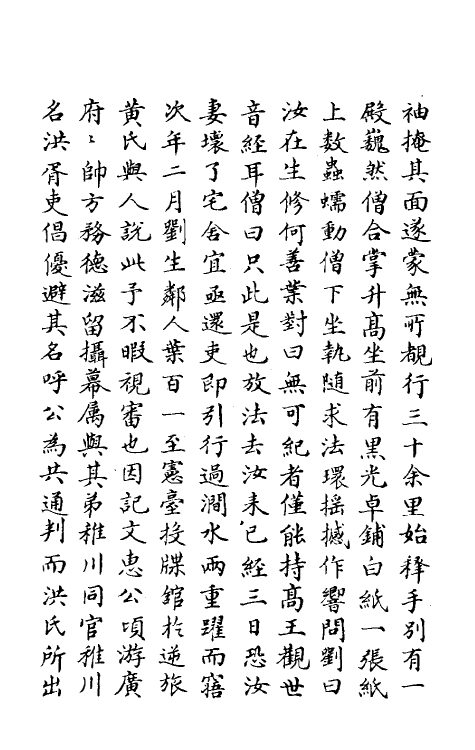 袖掩其面遂蒙無所覩行三十余里始釋手別有一
殿巍然僧合掌升髙坐前有黒光卓鋪白紙一張紙
上数蟲蠕動僧下坐執随求法環揺撼作響問劉曰
汝在生修何善業對曰無可紀者僅能持髙王觀世
音經耳僧曰只此是也放法去汝来已經三日恐汝
妻壊了宅舍宜亟還吏即引行過澗水兩重躍而寤
次年二月劉生鄰人葉百一至憲臺投牒舘扵逆旅
黄氏與人説此予不暇視審也因記文恵公頃游廣
府〻帥方務徳滋留攝幕属與其弟稚川同官稚川
名洪胥吏倡優避其名呼公為共通判而洪氏所出